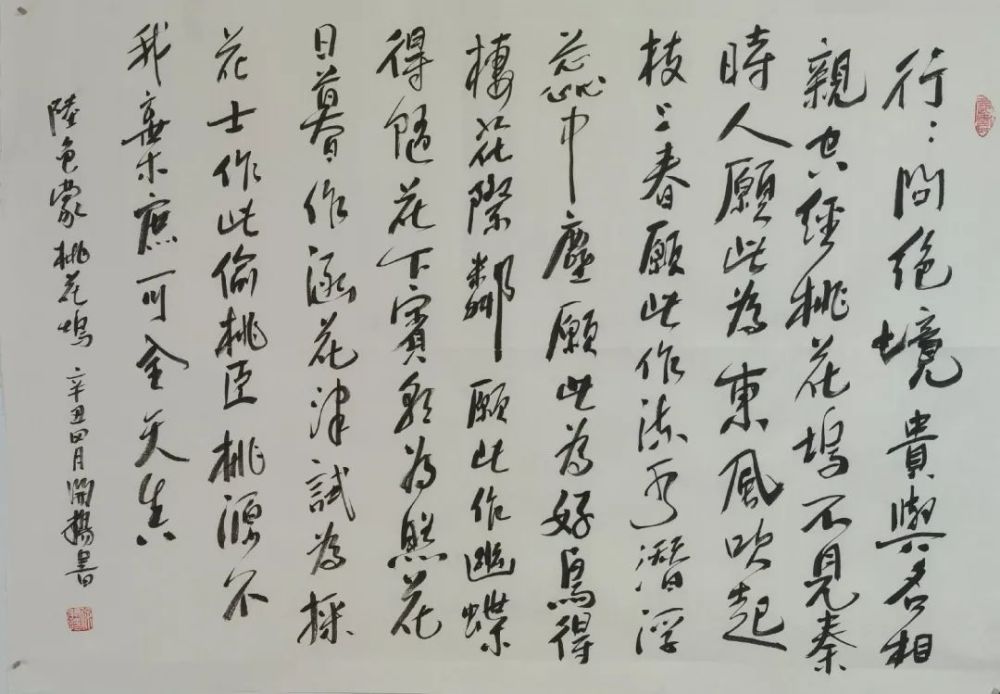 行〻問絶境貴與名相
親空經桃花塢不見秦
時人願此為東風吹起
枝上春願此作流水潛浮
蕊中塵願此為好鳥得
棲花際鄰願此作幽蝶
得隨花下賓朝為照花
日暮作涵花津試為探
花士作此偷桃臣桃源不
我棄庶可全天真
陸龜蒙桃花塢 辛丑四月開書